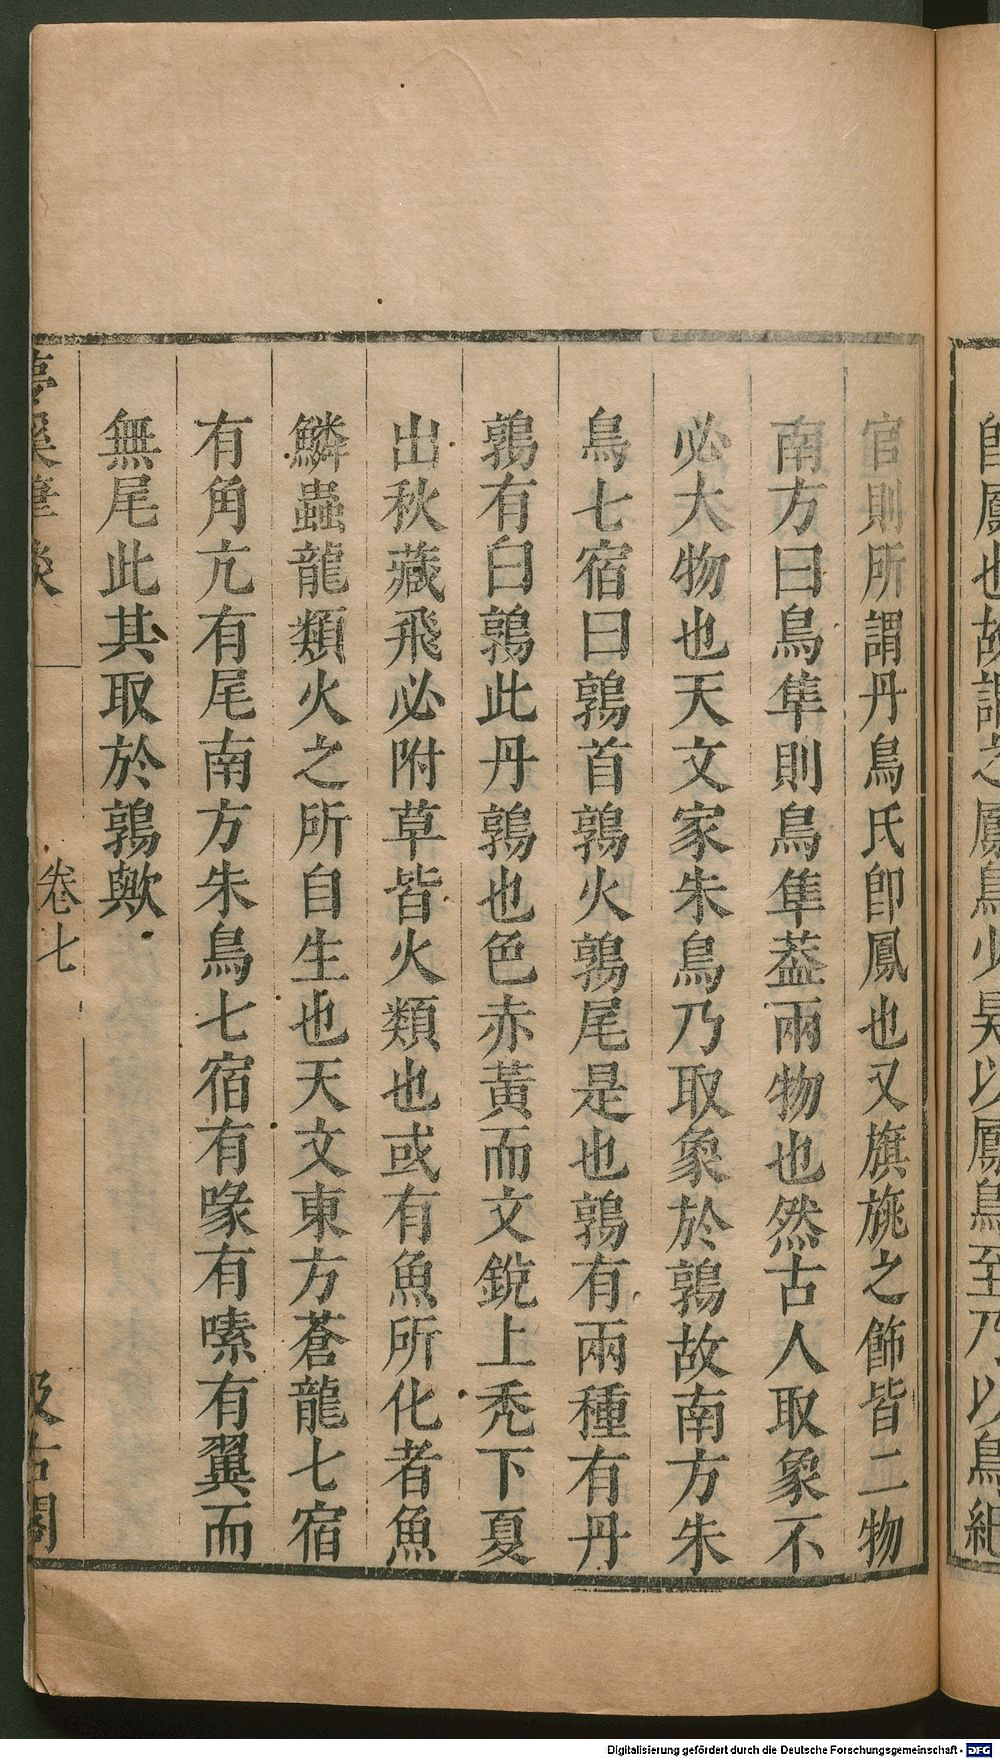 卽鳳也故謂之鳳鳥少昊以鳳鳥至乃以鳥紀
官則所謂丹鳥氏卽鳳也又旗旐之飾皆二物
南方曰鳥隼則鳥隼葢兩物也然古人取象不
必大物也天文家朱鳥乃取象於鶉故南方朱
鳥七宿曰鶉首鶉火鶉尾是也鶉有兩種有丹
鶉有白鶉此丹鶉也色赤黃而文銳上禿下夏
出秋藏飛必附草皆火類也或有魚所化者魚
鱗蟲龍類火之所自生也天文東方蒼龍七宿
有角亢有尾南方朱鳥七宿有喙有嗉有翼而
無尾此其取於鶉歟
夢溪筆談 卷七 汲古閣
Digitalisierung gefördert durch die Deutsche Forschungsgemeinschaft - DFG